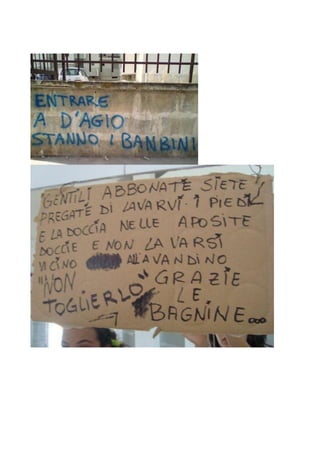 ENTRARE
A D'AGIO
STANNO I BANBINI
GENTILI ABBONATE SIETE
PREGATE DI LAVARVI I PIEDI
E LA DOCCIA NELLE APOSITE
DOCCIE E NON LAVARSI
VICINO ALLAVANDINO
"NON GRAZIE
TOGLIERLO" LE
BAGNINE...